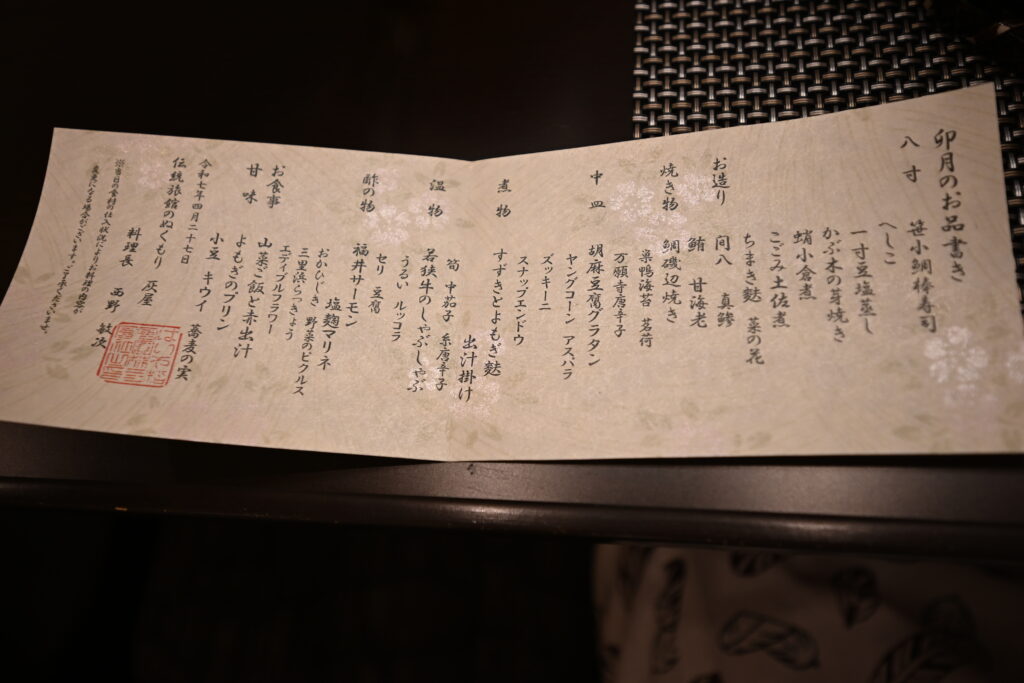 卯月のお品書き
八寸
笹小鯛棒寿司
へしこ
一寸豆塩蒸し
かぶ木の芽焼き
蛸小倉煮
こごみ土佐煮
ちまき麩 菜の花
お造り
間八 真鯵
鮪 甘海老
焼き物
鯛磯辺焼き
巣鴨海苔 茗荷
万願寺唐辛子
中皿
胡麻豆腐グラタン
ヤングコーン アスパラ
ズッキーニ
スナップエンドウ
煮物
すずきとよもぎ麩
出汁掛け
筍 中茄子 糸唐辛子
温物
若狭牛のしゃぶしゃぶ
うるい ルッコラ
セリ 豆腐
酢の物
福井サーモン
塩麹マリネ
おかひじき 野菜のピクルス
三里浜らっきょう
エディブルフラワー
お食事
山菜ご飯と赤出汁
甘味
よもぎのプリン
小豆 キウイ 蕎麦の実
令和七年四月二十七日
伝統旅館のぬくもり 灰屋
料理長 西野 敏次
※当日の食材の仕入状況によりお料理の内容が
変更になる場合がございます。ご了承くださいませ。